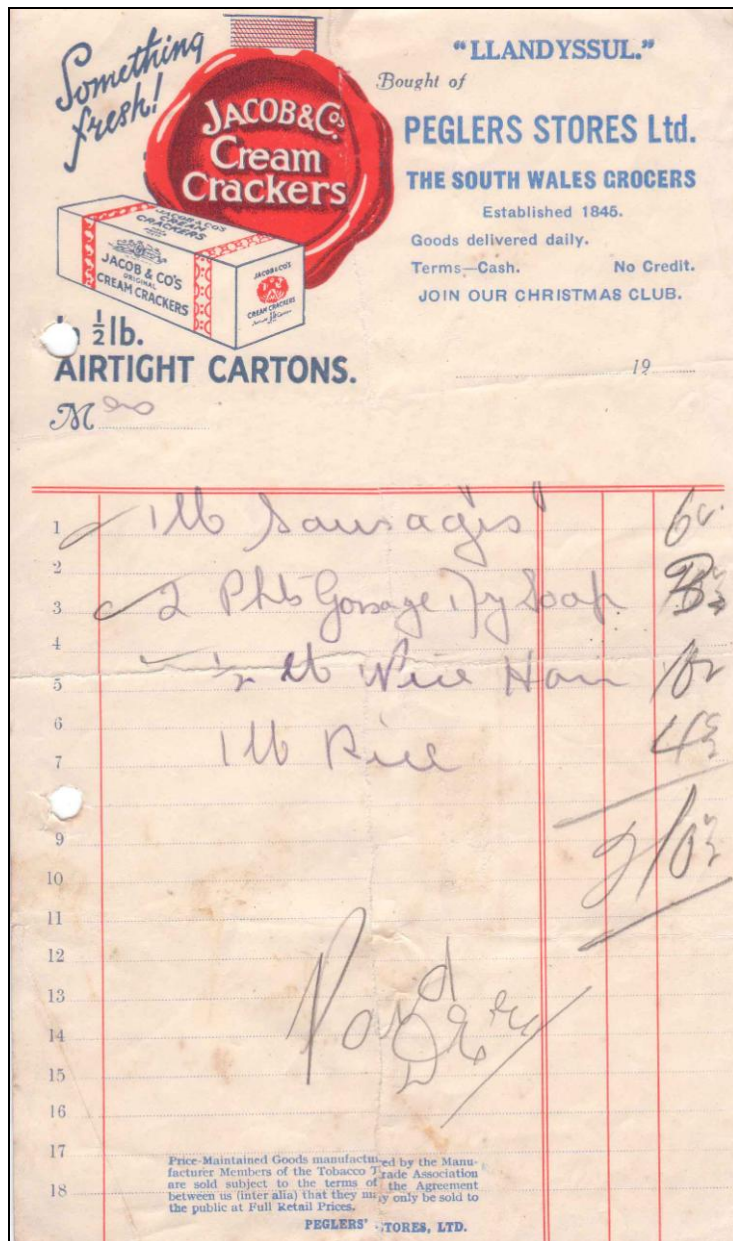 Something
fresh!
JACOB & Co's
Cream
Crackers
JACOB & CO'S
CREAM
CRACKERS
JACOB & CO'S
ORIGINAL
CREAM CRACKERS
JACOB & CO'S
CREAM CRACKERS
½lb.
AIRTIGHT CARTONS.
M
"LLANDYSSUL."
Bought of
PEGLERS STORES Ltd.
THE SOUTH WALES GROCERS
Established 1845.
Goods delivered daily.
Terms—Cash. No Credit.
JOIN OUR CHRISTMAS CLUB.
19
1 1 lb Sausages
2
3 2 Pkts Gossage Dry Soap
4
5 ½ lb Nice Ham
6
7 1 lb Rice 4½
9 2/0½
10
11
12
13
14 Paid
15
16
17
18
Price-Maintained Goods manufactured by the Manu-
facturer Members of the Tobacco Trade Association
are sold subject to the terms of the Agreement
between us (inter alia) that they may only be sold to
the public at Full Retail Prices.
PEGLERS' STORES, LTD.